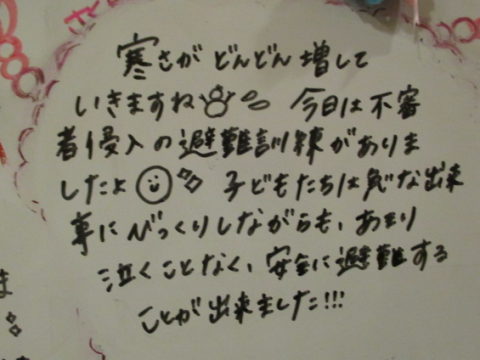 寒さが どんどん 増して
いきますね 今日は不審
者侵入の避難訓練がありま
したよ 子どもたちは急な出来
事にびっくりしながらも、あまり
泣くことなく、安全に避難する
ことが出来ました!!!